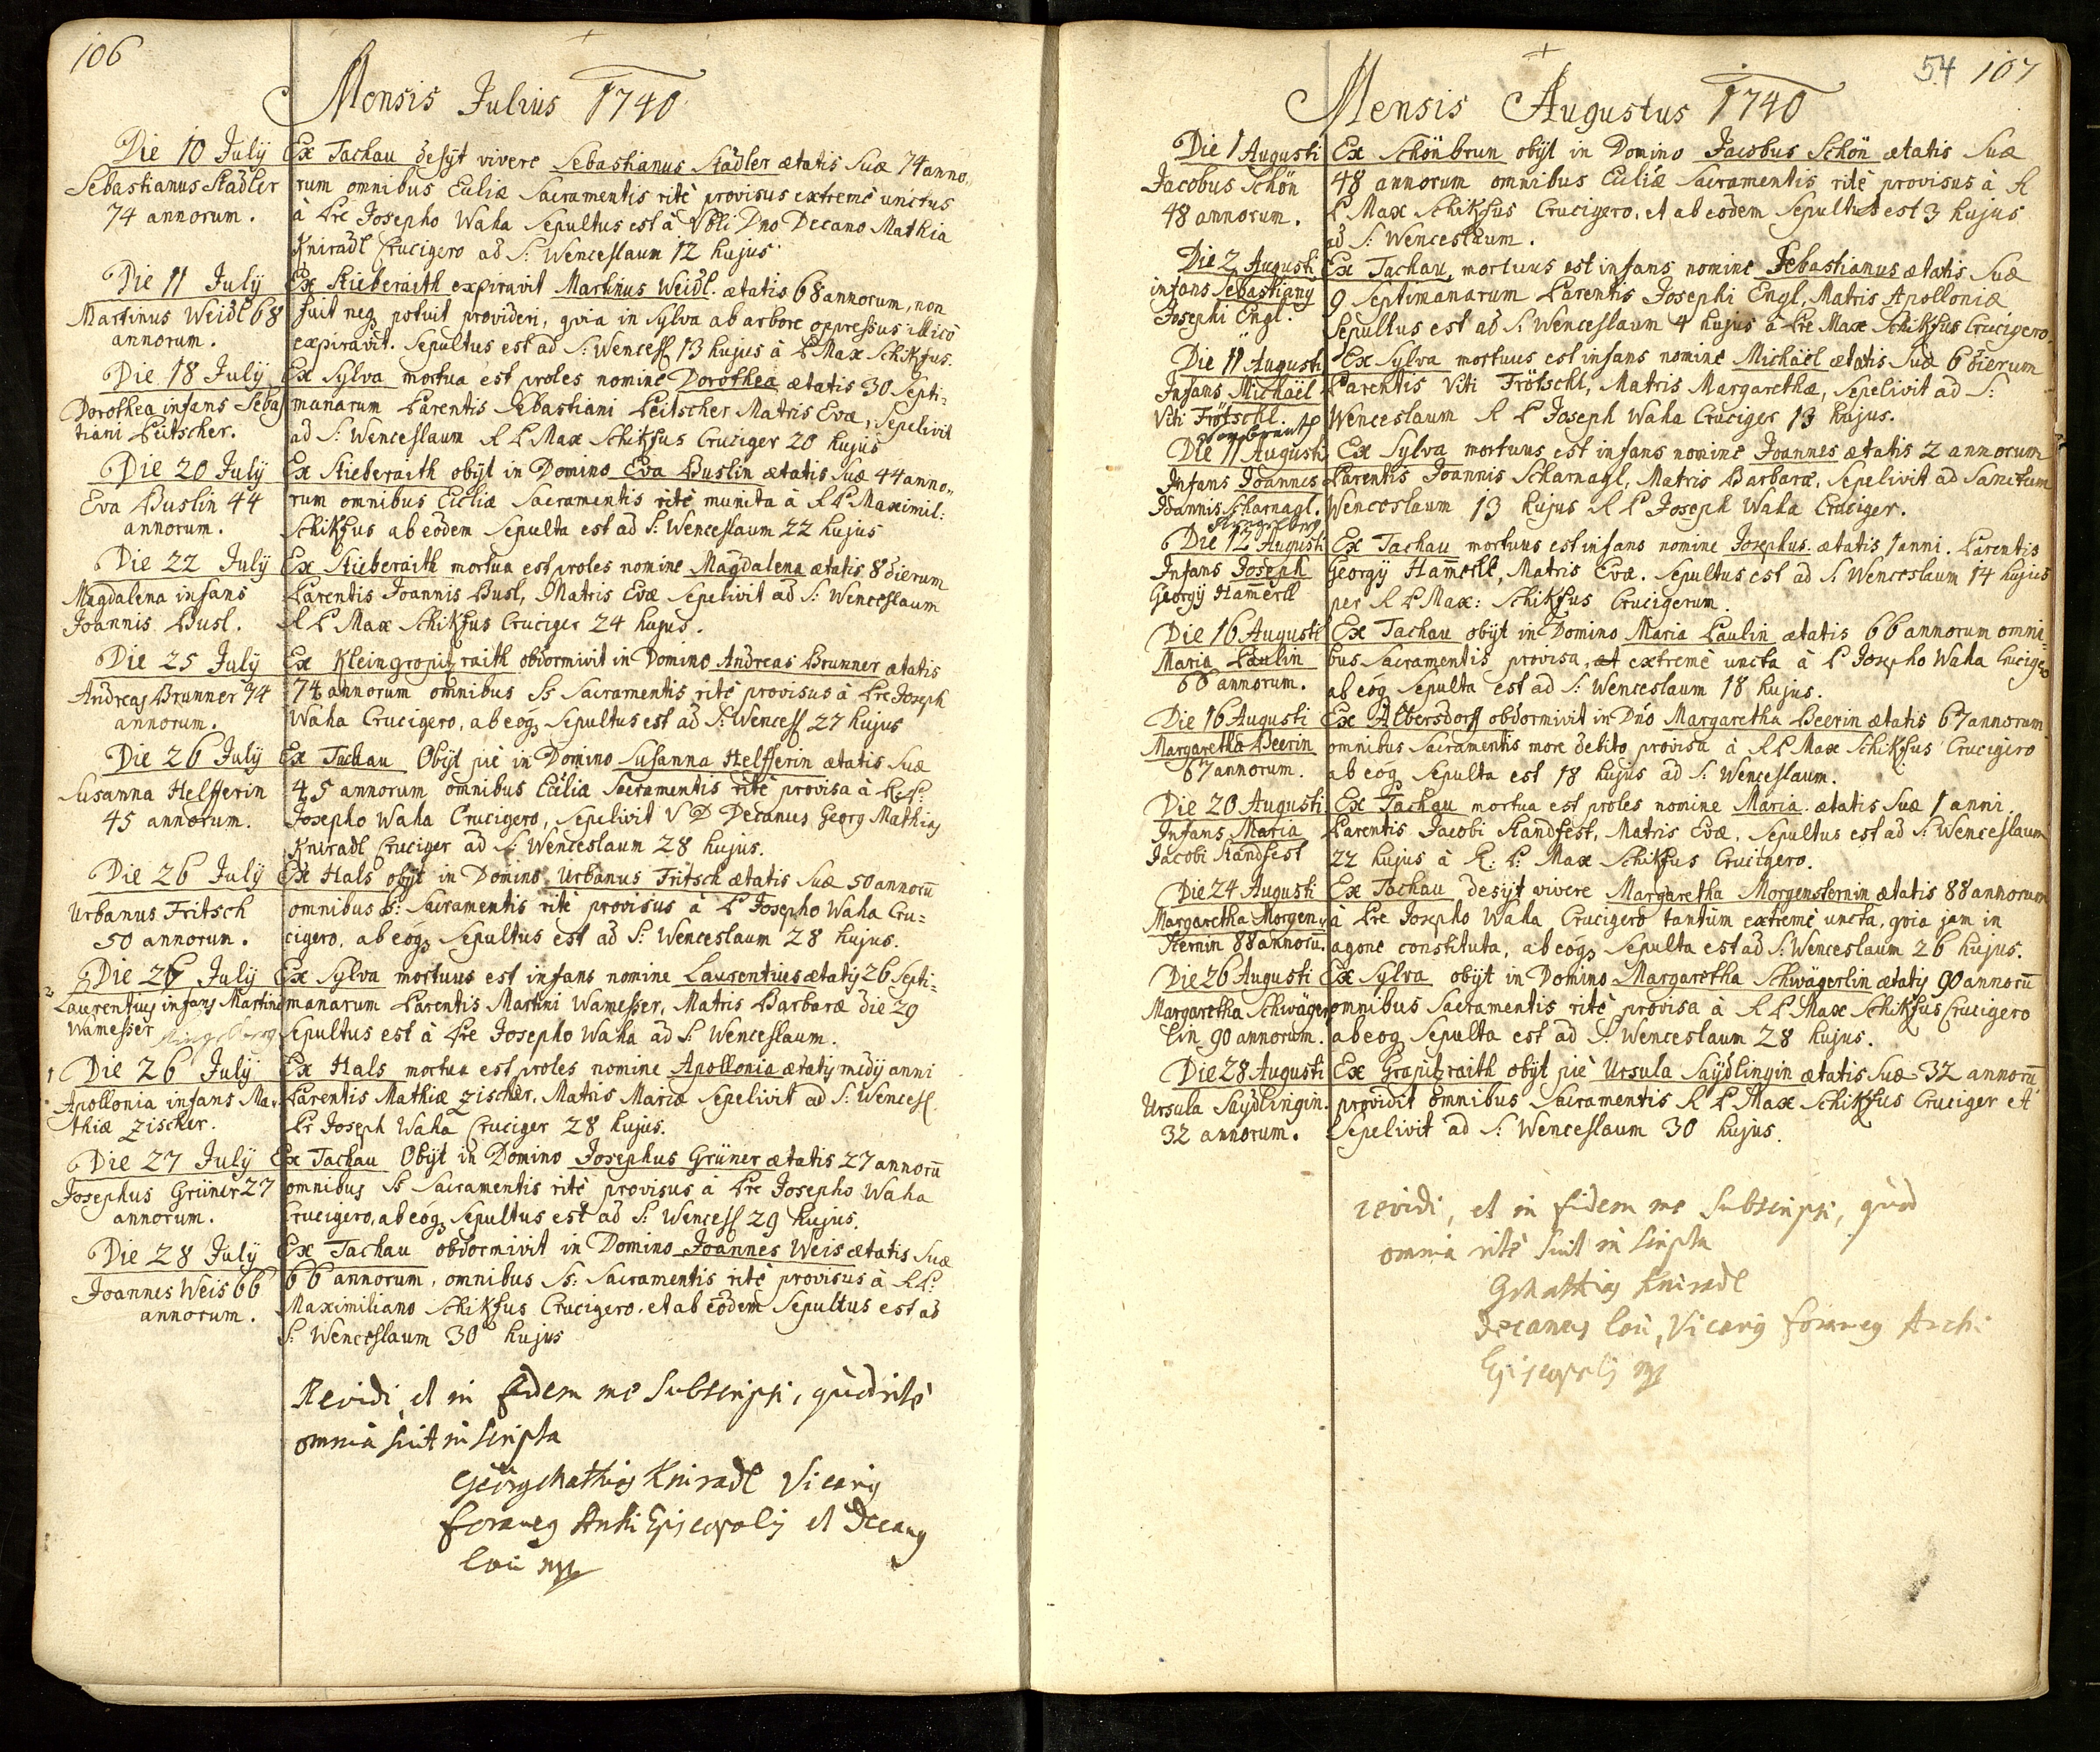 106
Mensis Julius 1740
Die 10 July
Sebastianus Stadler
74 annorum.
Ex Tachau desÿt vivere Sebastianus Stadler ætatis Suæ 74 anno„
rum omnibus Eccliæ Sacramentis ritè provisus extremè unctus
à Pre Josepho Waha Sepultus est à Vbli Dno Decano Mathia
Kniradl Crucigero ad S: Wenceslaum 12 hujus
Die 11 July
Martinus Weidl 68
annorum.
Ex Stieberaith expiravit Martinus Weidl. ætatis 68 annorum, non
fuit neq potuit provideri, qvia in Sylva ab arbore oppressus illicò
expiravit. Sepultus est ad S: Wencesl 13 hujus à P Max Schikfus.
Die 18 July
Dorothea infans Seba
tiani Peitscher.
Ex Sylva mortua est proles nomine Dorothea ætatis 30 Septi=
manarum Parentis Sebastiani Peitscher Matris Evæ, Sepelivit
ad S: Wenceslaum R P Max Schikfus Cruciger 20 hujus
Die 20 July
Eva Buslin 44
annorum.
Ex Stieberaith obÿt in Domino Eva Buslin ætatis Suæ 44 anno„
rum omnibus Eccliæ Sacramentis ritè munita à R P Maximil:
Schikfus ab eodem Sepulta est ad S: Wenceslaum 22 hujus
Die 22 July
Magdalena infans
Joannis Busl.
Ex Stieberaith mortua est proles nomine Magdalena ætatis 8 dierum
Parentis Joannis Busl, Matris Evæ Sepelivit ad S: Wenceslaum
R P Max Schikfus Cruciger 24 hujus.
Die 25 July
Andreas Brunner 74
annorum.
Ex Kleingropitzraith obdormivit in Domino Andreas Brunner ætatis
74 annorum omnibus Ss Sacramentis ritè provisus à Pre Joseph
Waha Crucigero, ab eoq Sepultus est ad S: Wencesl 27 hujus
Die 26 July
Susanna Helfferin
45 annorum.
Ex Tachau Obÿt piè in Domino Susanna Helfferin ætatis Suæ
45 annorum omnibus Ecclia Sacramentis ritè provisa à R: P:
Josepho Waha Crucigero, Sepelivit V D Decanus Georg Mathias
Kniradl Cruciger ad S: Wenceslaum 28 hujus.
Die 26 July
Urbanus Fritsch
50 annorum.
Ex Hals obÿt in Domino Urbanus Fritsch ætatis Suæ 50 annorū
omnibus S: Sacramentis ritè provisus à P Josepho Waha Cru=
cigero, ab eoq Sepultus est ad S: Wenceslaum 28 hujus.
2 Die 26 July
Laurentius infans Martini
Wamesser
Ex Sylva mortuus est infans nomine Laurentius ætatis 26 Septi=
manarum Parentis Martini Wamesser, Matris Barbaræ die 29
Sepultus est à Pre Josepho Waha ad S: Wenceslaum.
1 Die 26 July
Apollonia infans Ma„
thiæ Zischer.
Ex Hals mortua est proles nomine Apollonia ætatis medÿ anni
Parentis Mathiæ Zischer, Matris Mariæ Sepelivit ad S: Wencesl.
Pr Joseph Waha Cruciger 28 hujus.
Die 27 July
Josephus Grüner 27
annorum.
Ex Tachau Obÿt in Domino Josephus Grüner ætatis 27 annorū
omnibus Ss Sacramentis ritè provisus à Pre Josepho Waha
Crucigero, ab eoq Sepultus est ad S: Wencesl 29 hujus.
Die 28 July
Joannes Weis 66
annorum.
Ex Tachau obdormivit in Domino Joannes Weis ætatis Suæ
66 annorum, omnibus Ss: Sacramentis ritè provisus à R P:
Maximiliano Schikfus Crucigero, et ab eodem Sepultus est ad
S: Wenceslaum 30 hujus
Revidi, et in fidem me Subscripsi, quòd ritè
omnia sint inscripta
Georg Mathias Kniradl Vicarius
foraneus Archi Episcopalis et Decanus
loci mp
54 107
Mensis Augustus 1740
Die 1 Augusti
Jacobus Schön
48 annorum.
Ex Schönbrun obÿt in Domino Jacobus Schön ætatis Suæ
48 annorum omnibus Eccliæ Sacramentis ritè provisus à R
P Max Schikfus Crucigero, et ab eodem Sepultus est 3 hujus
ad S: Wenceslaum.
Die 2 Augusti
infans Sebastianus
Josephi Engl.
Ex Tachau mortuus est infans nomine Sebastianus ætatis Suæ
9 Septimanarum Parentis Josephi Engl, Matris Apolloniæ
Sepultus est ad S: Wenceslaum 4 hujus à Pre Max Schikfus Crucigero.
Die 11 Augusti
Infans Michaël
Viti Frötschl.
Ex Sylva mortuus est infans nomine Michaël ætatis Suæ 6 dierum
Parentis Viti Frötschl, Matris Margarethæ, Sepelivit ad S:
Wenceslaum R P Joseph Waha Cruciger 13 hujus.
Die 11 Augusti
Infans Joannes
Joannis Scharnagl.
Ex Sylva mortuus est infans nomine Joannes ætatis 2 annorum
Parentis Joannis Scharnagl, Matris Barbaræ, Sepelivit ad Sanctum
Wenceslaum 13 hujus R P Joseph Waha Cruciger.
Die 12 Augusti
Infans Joseph
Georgÿ Hamerll
Ex Tachau mortuus est infans nomine Josephus ætatis 1 anni. Parentis
Georgÿ Ham̄erll, Matris Evæ. Sepultus est ad S: Wenceslaum 14 hujus
per R P Max: Schikfus Crucigerum.
Die 16 Augusti
Maria Paulin
66 annorum.
Ex Tachau obÿt in Domino Maria Paulin ætatis 66 annorum omni=
bus Sacramentis provisa, et extremè uncta à P Josepho Waha Crucigero
ab eoq Sepulta est ad S: Wenceslaum 18 hujus.
Die 16 Augusti
Margaretha Beerin
67 annorum.
Ex Albersdorff obdormivit in Dn̄o Margaretha Beerin ætatis 67 annorum
omnibus Sacramentis more debito provisa à R P Max Schikfus Crucigero
ab eoq Sepulta est 18 hujus ad S: Wenceslaum.
Die 20 Augusti
Infans Maria
Jacobi Standfest
Ex Tachau mortua est proles nomine Maria ætatis Suæ 1 anni.
Parentis Jacobi Standfest, Matris Evæ, Sepultus est ad S: Wenceslaum
22 hujus à R: P: Max Schikfus Crucigero.
Die 24 Augusti
Margaretha Morgen„
sternin 88 annorū.
Ex Tachau desÿt vivere Margaretha Morgensternin ætatis 88 annorum
à Pre Josepho Waha Crucigero tantùm extremè uncta, qvia jam in
agone constituta, ab eoq Sepulta est ad S: Wenceslaum 26 hujus.
Die 26 Augusti
Margaretha Schwäger
lin 90 annorum.
Ex Sylva obÿt in Domino Margaretha Schwägerlin ætatis 90 annorū
omnibus Sacramentis ritè provisa à R P Max Schikfus Crucigero
ab eoq Sepulta est ad S: Wenceslaum 28 hujus.
Die 28 Augusti
Ursula Saÿdlingin.
32 annorum.
Ex Grapitzraith obÿt piè Ursula Saÿdlingin ætatis Suæ 32 annorū
providit omnibus Sacramentis R P Max Schikfus Cruciger et
Sepelivit ad S: Wenceslaum 30 hujus.
revidi, et in fidem me Subscripsi, quòd
omnia ritè sint inscripta
GMathias Kniradl
Decanus loci, Vicarius foraneus Archi
Episcopalis mp